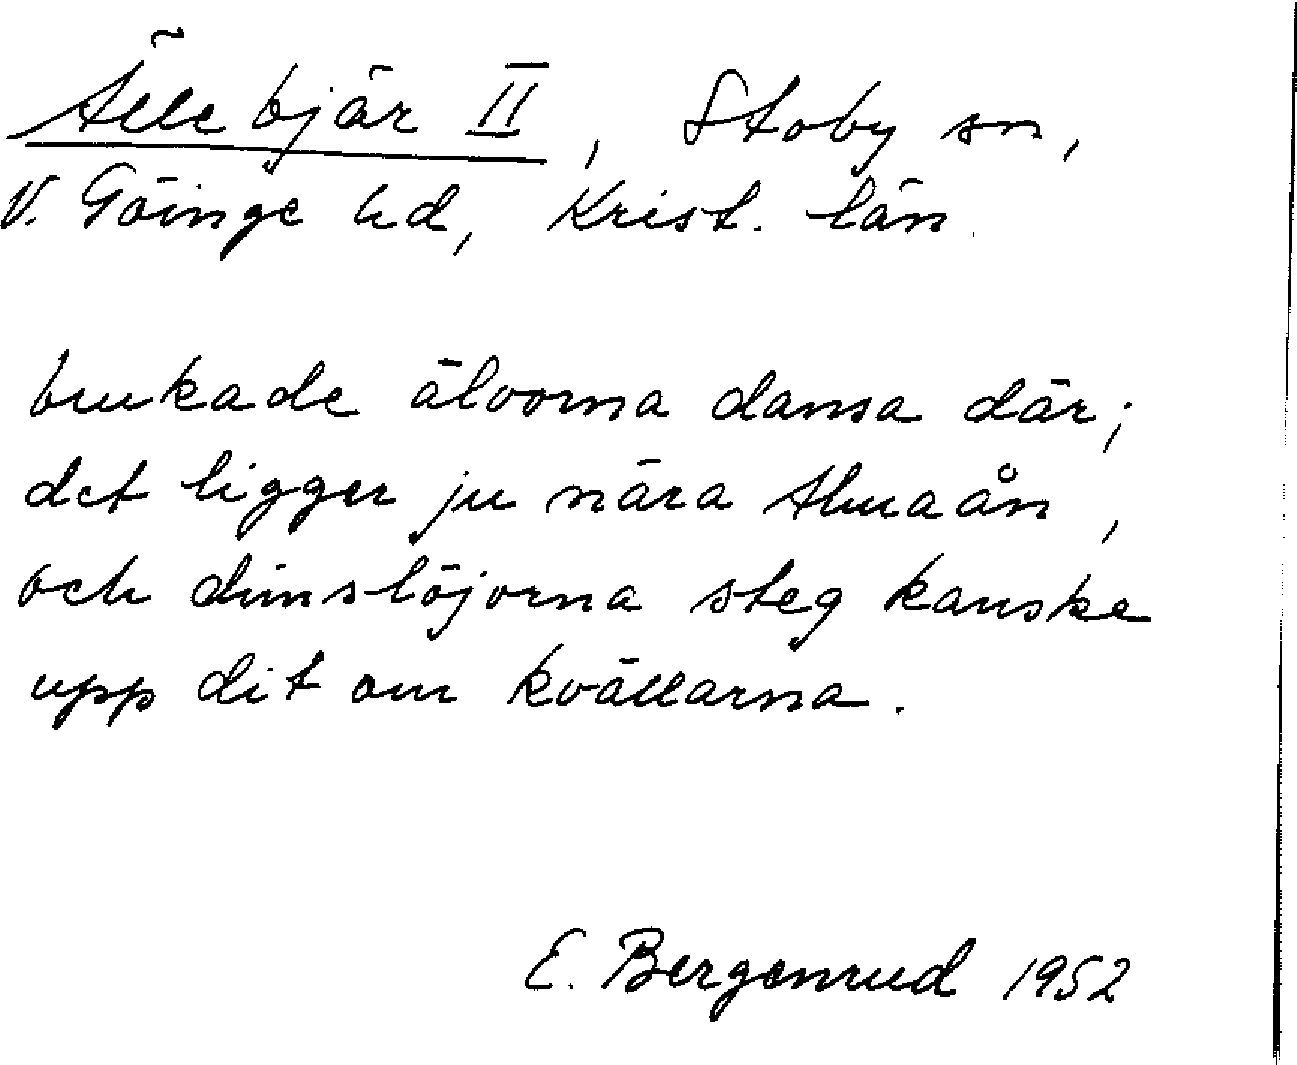 Ällebjär II, Stoby sn,
V. Göinge hd, Krist. län.
brukade älvorna dansa där;
det ligger ju nära Almaån,
och dimslöjorna steg kanske
upp dit om kvällarna.
E. Bergenrud 1952